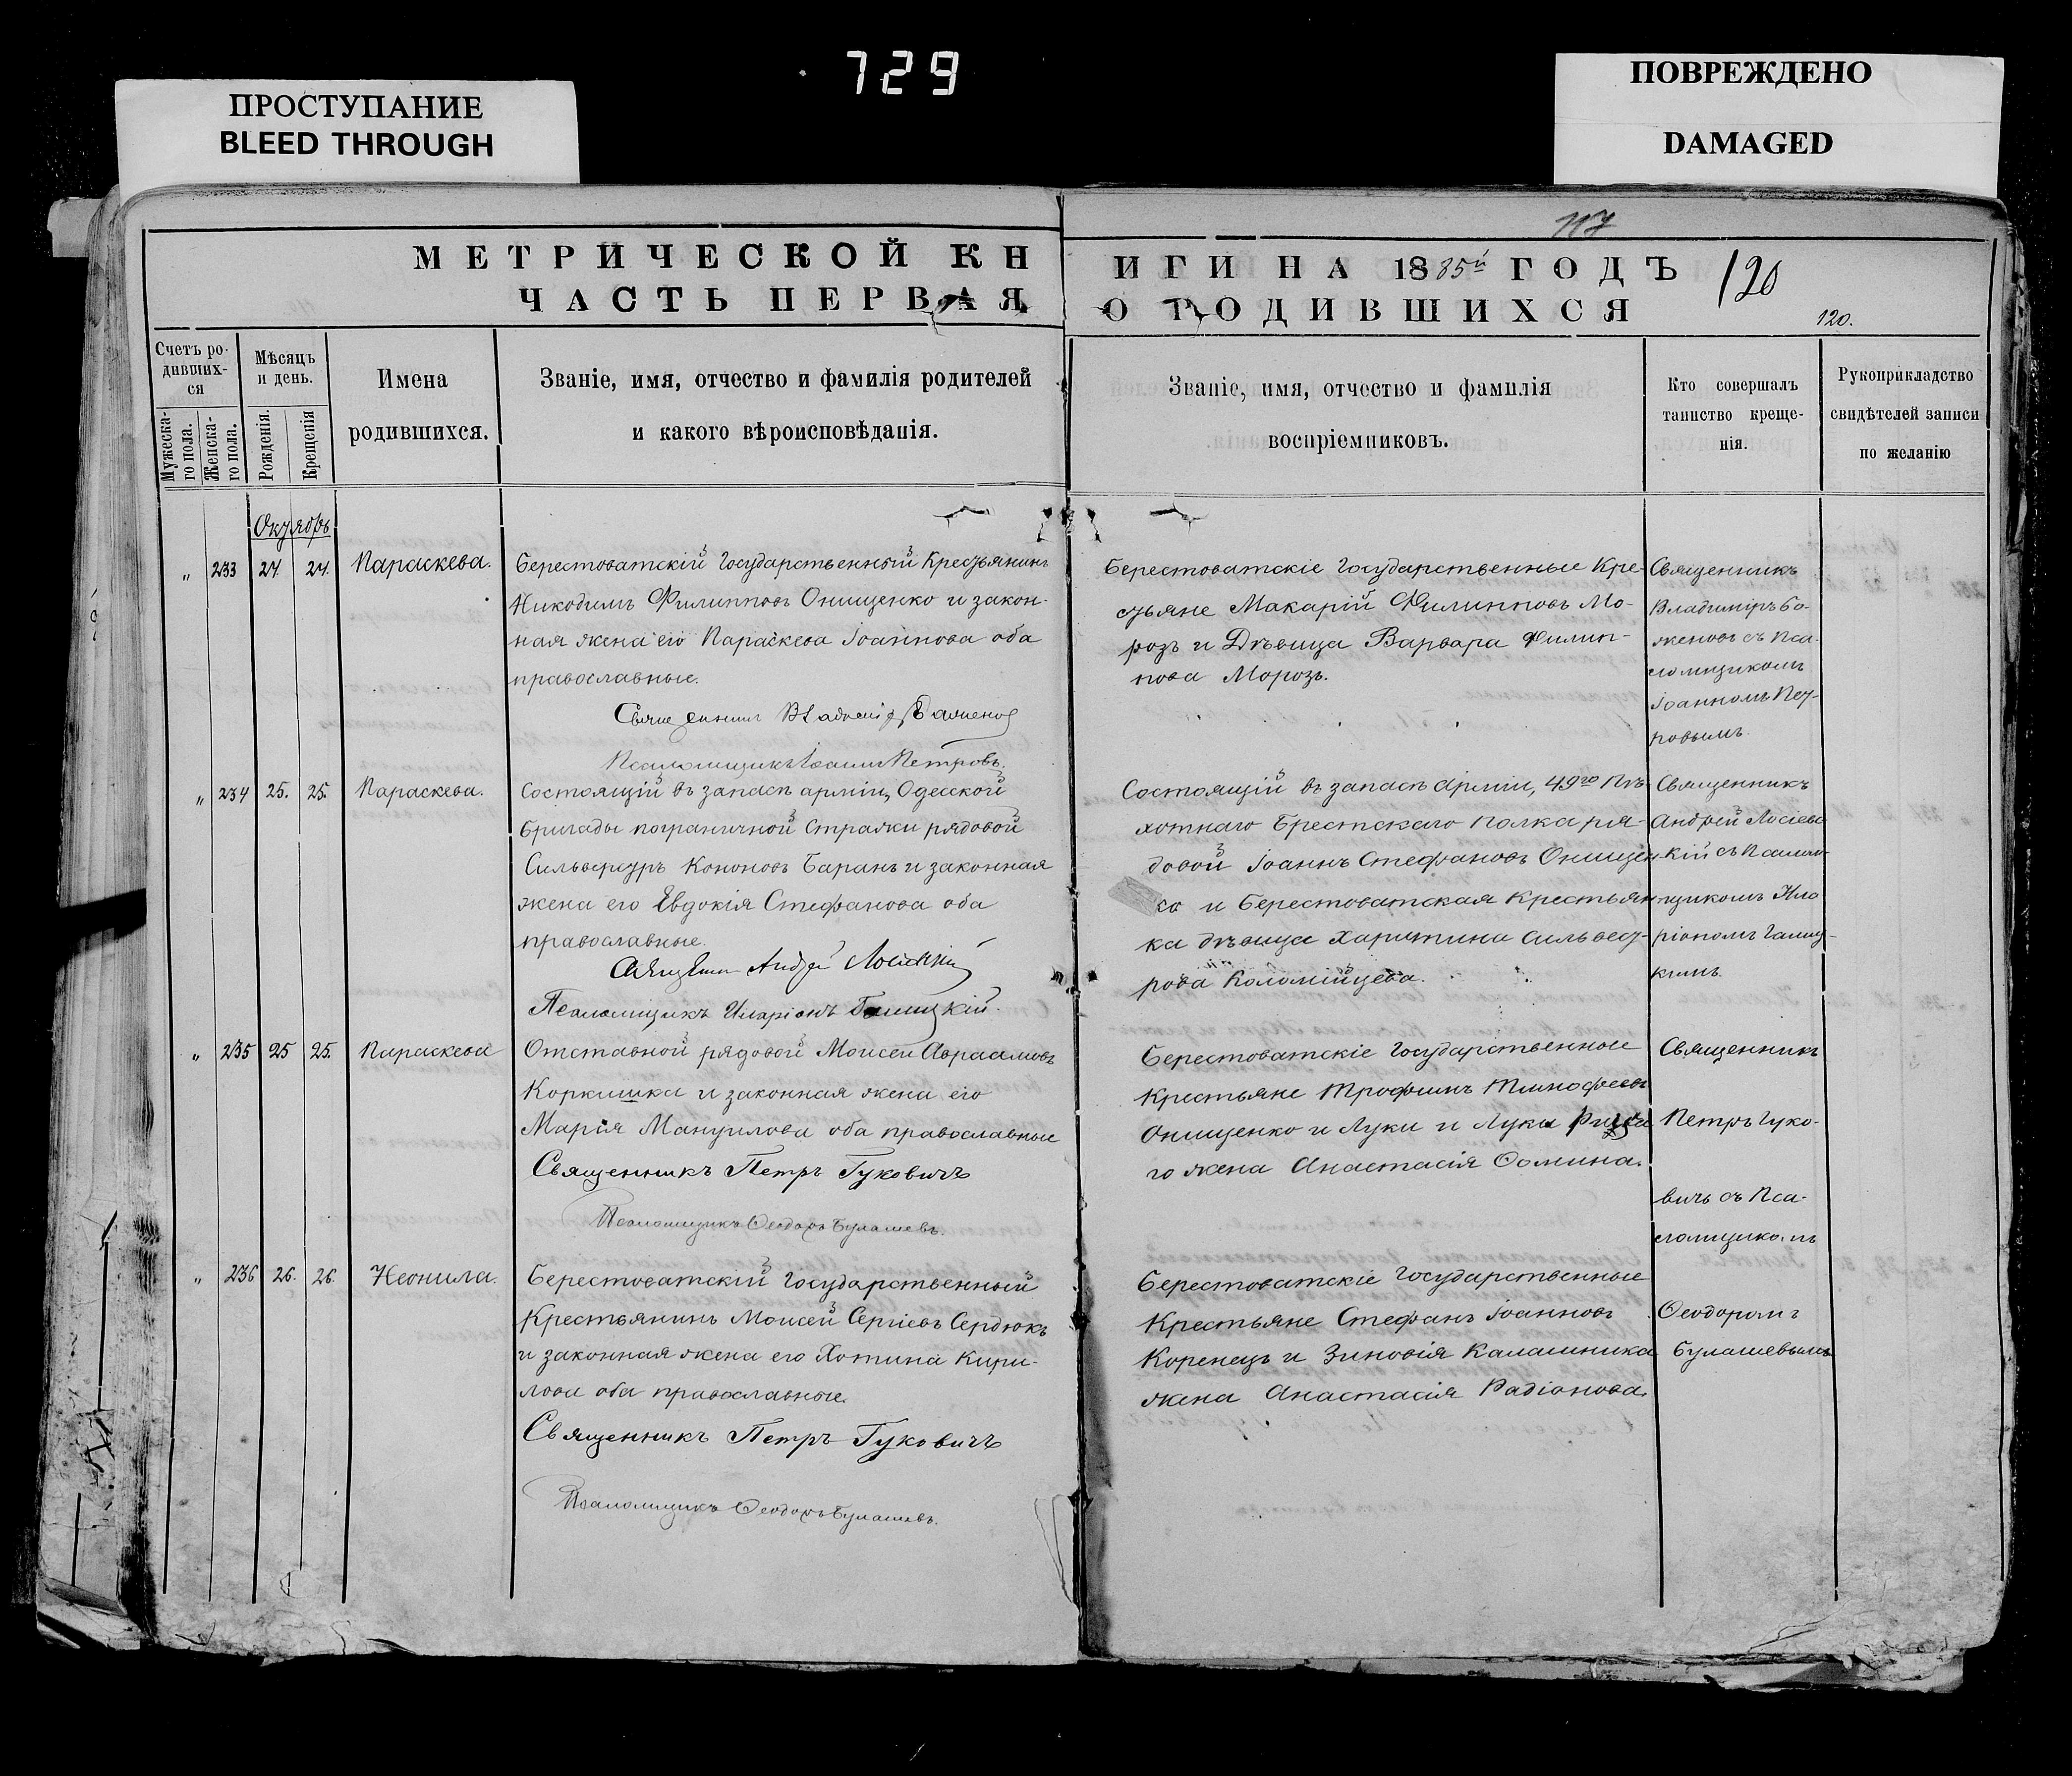 729
ПРОСТУПАНИЕ
BLEED THROUGH
ПОВРЕЖДЕНО
DAMAGED
117
МЕТРИЧЕСКОЙ КНИГИ НА 1885й ГОДЪ
120
ЧАСТЬ ПЕРВАЯ О РОДИВШИХСЯ
120.
Счетъ родившихся
Мужескаго пола.
Женскаго пола.
Мѣсяцъ и день.
Рожденія.
Крещенія
Имена
родившихся.
Званіе, имя, отчество и фамилія родителей
и какого вѣроисповѣданія.
Званіе, имя, отчество и фамилія
воспріемниковъ.
Кто совершалъ
таинство креще-
нія.
Рукоприкладство
свидѣтелей записи
по желанію
Октябрь
" 233 24 24. Параскева.
Берестоватскій Государственный Крестьянинъ
Никодимъ Филипповъ Онищенко и закон-
ная жена его Параскева Іоаннова оба
православные.
Священникъ Владимір Баженов
Псаломщикъ Іоаннъ Петровъ.
Берестоватскіе Государственные Кре-
стьяне Макарій Филипповъ Мо-
розъ и Дѣвица Варвара Филип-
пова Морозъ.
Священникъ
Владиміръ Ба-
женовъ съ Пса-
ломщикомъ
Іоанномъ Пет-
ровымъ.
" 234 25. 25. Параскева.
Состоящій въ запасѣ арміи, Одесской
бригады пограничной стражи рядовой
Сильвестръ Кононовъ Баранъ и законная
жена его Евдокія Стефанова оба
православные.
Священн Андрей Лосіевскій
Псаломщикъ Иларіонъ Галицкій.
Состоящій въ запасѣ Арміи, 49го Пѣ-
хотнаго Брестскаго полка ря-
довой Іоаннъ Стефановъ Онищен-
ко и Берестоватская Крестьян-
ка дѣвица Харитина Сильвест-
рова Коломійцева.
Священникъ
Андрей Лосіевс
кій съ Псалом-
щикомъ Ила
ріономъ Галиц-
кимъ.
" 235 25 25. Параскева
Отставной рядовой Моисей Авраамовъ
Коркишка и законная жена его
Марія Мануилова оба православные
Священникъ Петръ Гуковичъ
Псаломщикъ Ѳеодоръ Булашевъ.
Берестоватскіе Государственные
Крестьяне Трофимъ Тимофеевъ
Онищенко и Луки и Луки
го жена Анастасія Ѳомина.
Священникъ
Петръ Гуко-
вичъ съ Пса-
ломщикомъ
Ѳеодоромъ
Булашевымъ
" 236 26. 26. Неонила.
Берестоватскій Государственный
Крестьянинъ Моисей Сергіевъ Сердюкъ
и законная жена его Хотина Кири-
лова оба православные.
Священникъ Петръ Гуковичъ
Псаломщикъ Ѳеодоръ Булашевъ.
Берестоватскіе Государственные
Крестьяне Стефанъ Іоанновъ
Коренецъ и Зиновія Калашника
жена Анастасія Радіонова.